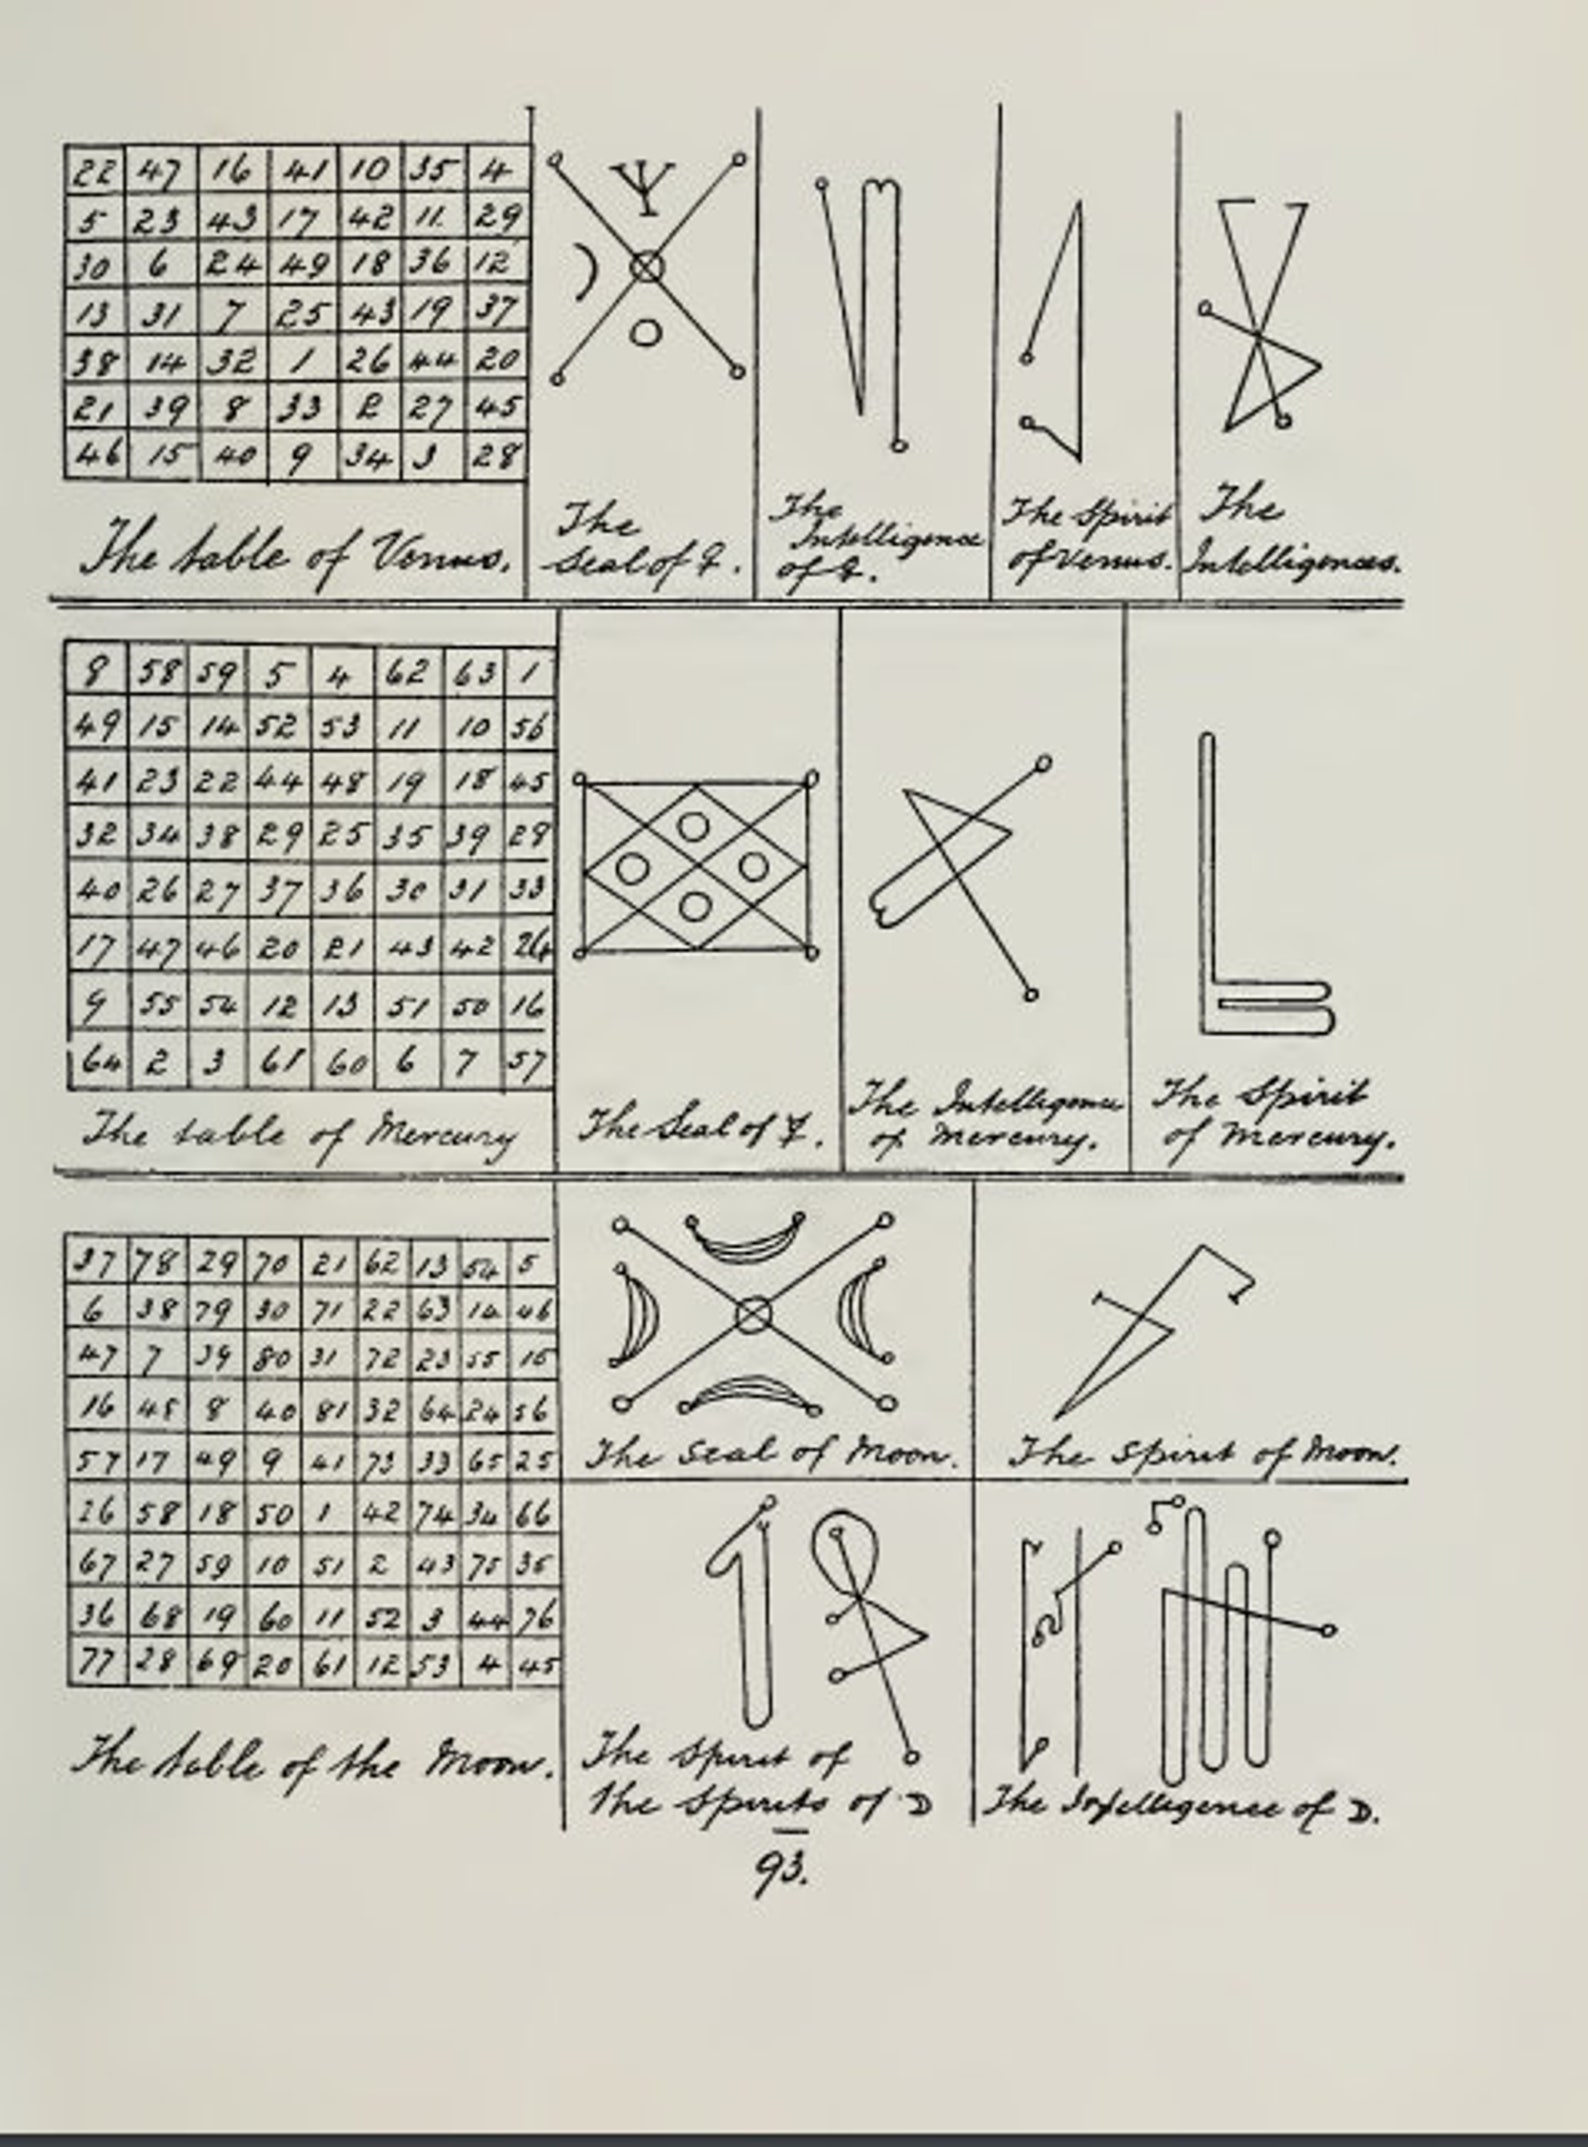 22 47 16 41 10 35 4
5 23 43 17 42 11 29
30 6 24 49 18 36 12
13 31 7 25 43 19 37
38 14 32 1 26 44 20
21 39 8 33 2 27 45
46 15 40 9 34 3 28
The table of Venus.
The
Seal of ♀.
The
Intelligence
of ♀.
The Spirit
of Venus.
The
Intelligences.
8 58 59 5 4 62 63 1
49 15 14 52 53 11 10 56
41 23 22 44 48 19 18 45
32 34 38 29 25 35 39 29
40 26 27 37 36 30 31 33
17 47 46 20 21 43 42 24
9 55 54 12 13 51 50 16
64 2 3 61 60 6 7 57
The table of Mercury
The Seal of ☿.
The Intelligence
of Mercury.
The Spirit
of Mercury.
37 78 29 70 21 62 13 54 5
6 38 79 30 71 22 63 14 46
47 7 39 80 31 72 23 55 15
16 48 8 40 81 32 64 24 56
57 17 49 9 41 73 33 65 25
26 58 18 50 1 42 74 34 66
67 27 59 10 51 2 43 75 35
36 68 19 60 11 52 3 44 76
77 28 69 20 61 12 53 4 45
The table of the Moon.
The Seal of Moon.
The Spirit of Moon.
The Spirit of
the Spirits of D
The Intelligence of D.
93.